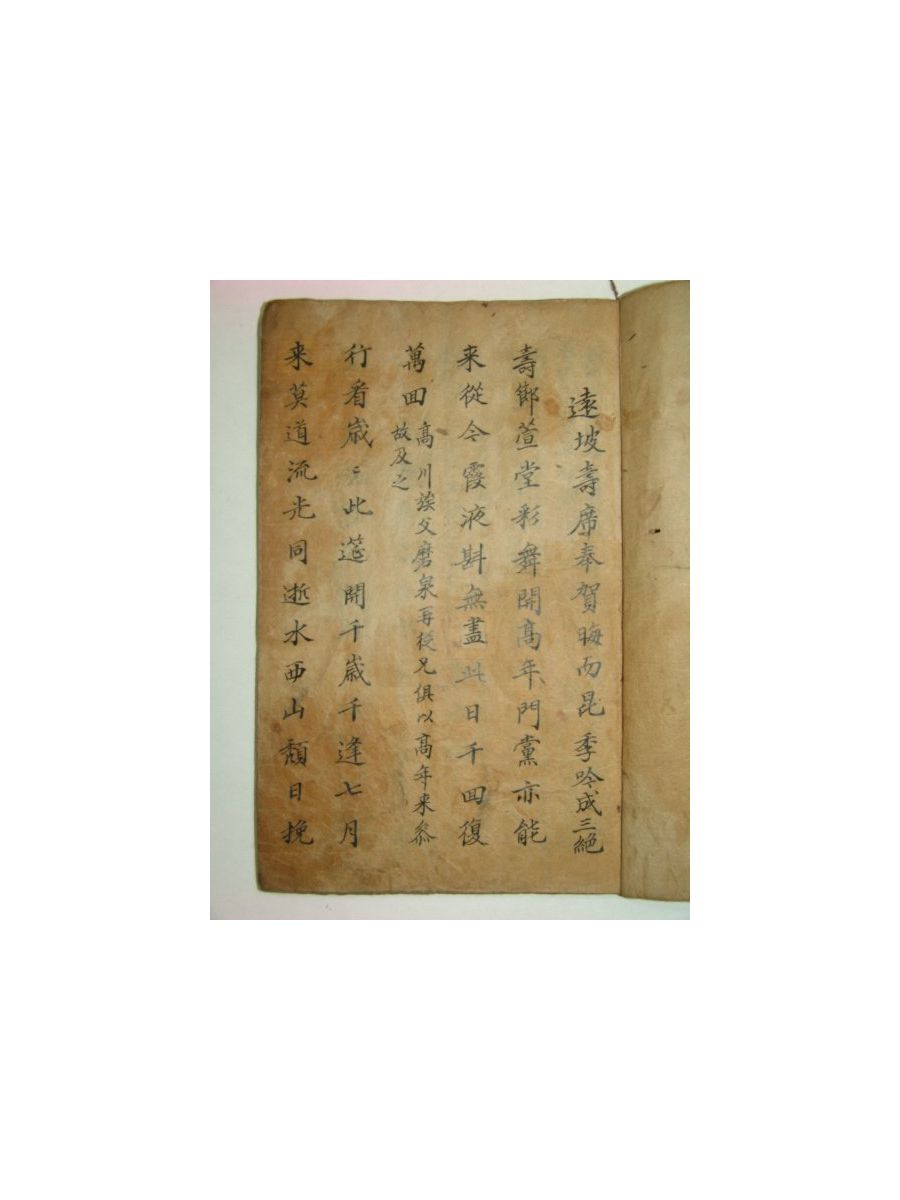 遠坡壽席奉賀晦而昆季吟成三絶
壽鄉萱堂彩舞開高年門黨亦能
来從今霞液斟無盡此日千回復
萬回
高川族父磨泉再從兄俱以高年来參
故及之
行看歲〻此筵開千歲千逢七月
来莫道流光同逝水西山頹日挽